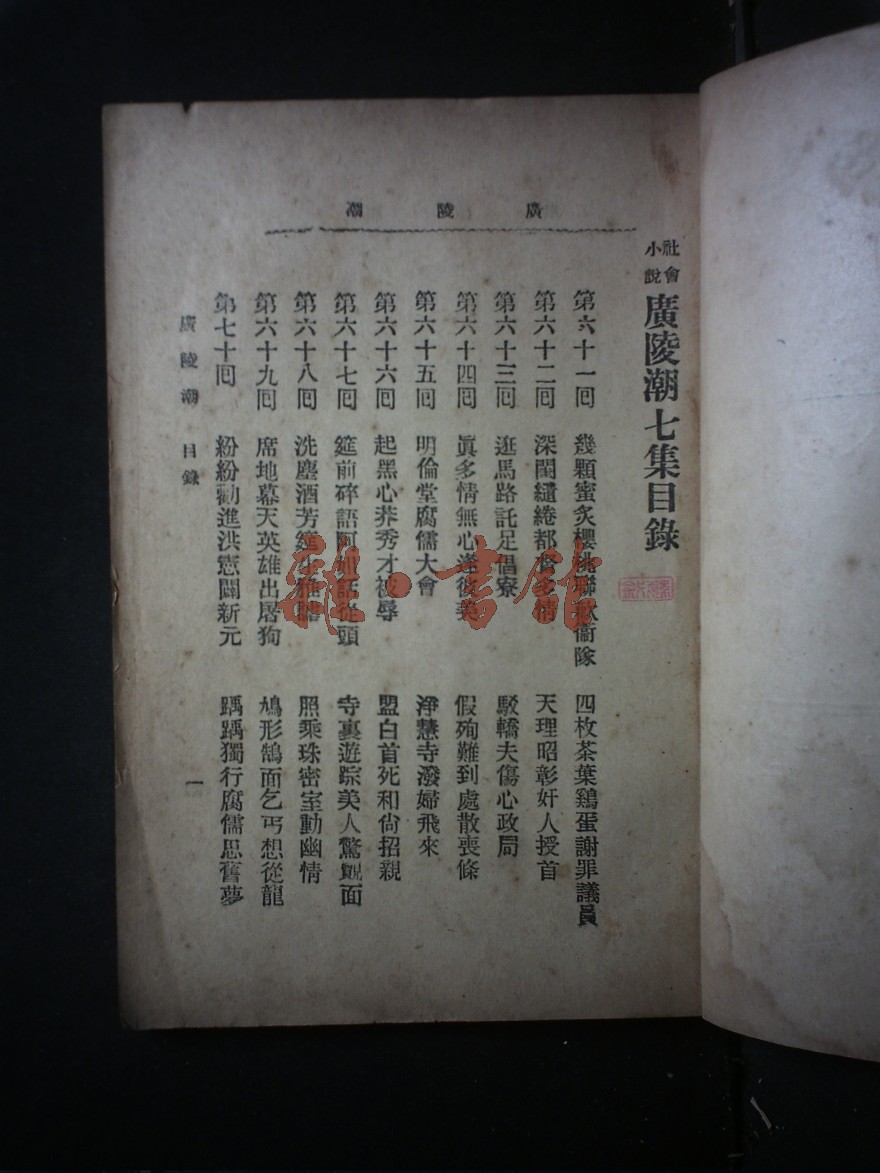 廣陵潮
社會小說 廣陵潮七集目錄
第六十一回 幾顆蜜炙櫻桃聯歡衞隊 四枚茶葉鷄蛋謝罪議員
第六十二回 深閨繾綣都爲多情 天理昭彰奸人授首
第六十三回 逛馬路託足倡寮 駁轎夫傷心政局
第六十四回 眞多情無心逢彼美 假殉難到處散喪條
第六十五回 明倫堂腐儒大會 淨慧寺潑婦飛來
第六十六回 起黑心莽秀才被辱 盟白首死和尙招親
第六十七回 筵前碎語阿姊話從頭 寺裏遊踪美人驚覿面
第六十八回 洗塵酒芳筵 照乘珠密室動幽情
第六十九回 席地幕天英雄出屠狗 鳩形鵠面乞丐想從龍
第七十回 紛紛勸進洪憲闢新元 踽踽獨行腐儒思舊夢
廣陵潮 目錄
一
雜·書館